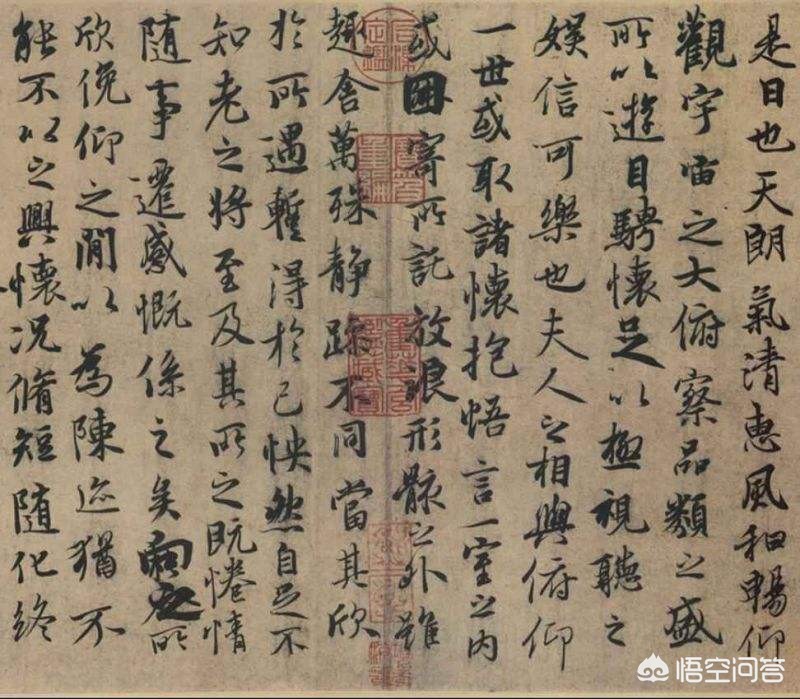 是日也天朗氣清惠風和暢仰
觀宇宙之大俯察品類之盛
所以遊目騁懷足以極視聽之
娛信可樂也夫人之相與俯仰
一世或取諸懷抱悟言一室之內
或因寄所託放浪形骸之外雖
趣舍萬殊靜躁不同當其欣
於所遇暫得於己怏然自足不
知老之將至及其所之既惓情
隨事遷感慨係之矣向之所
欣俛仰之間以為陳迹猶不
能不以之興懷況脩短隨化終
悟空问答